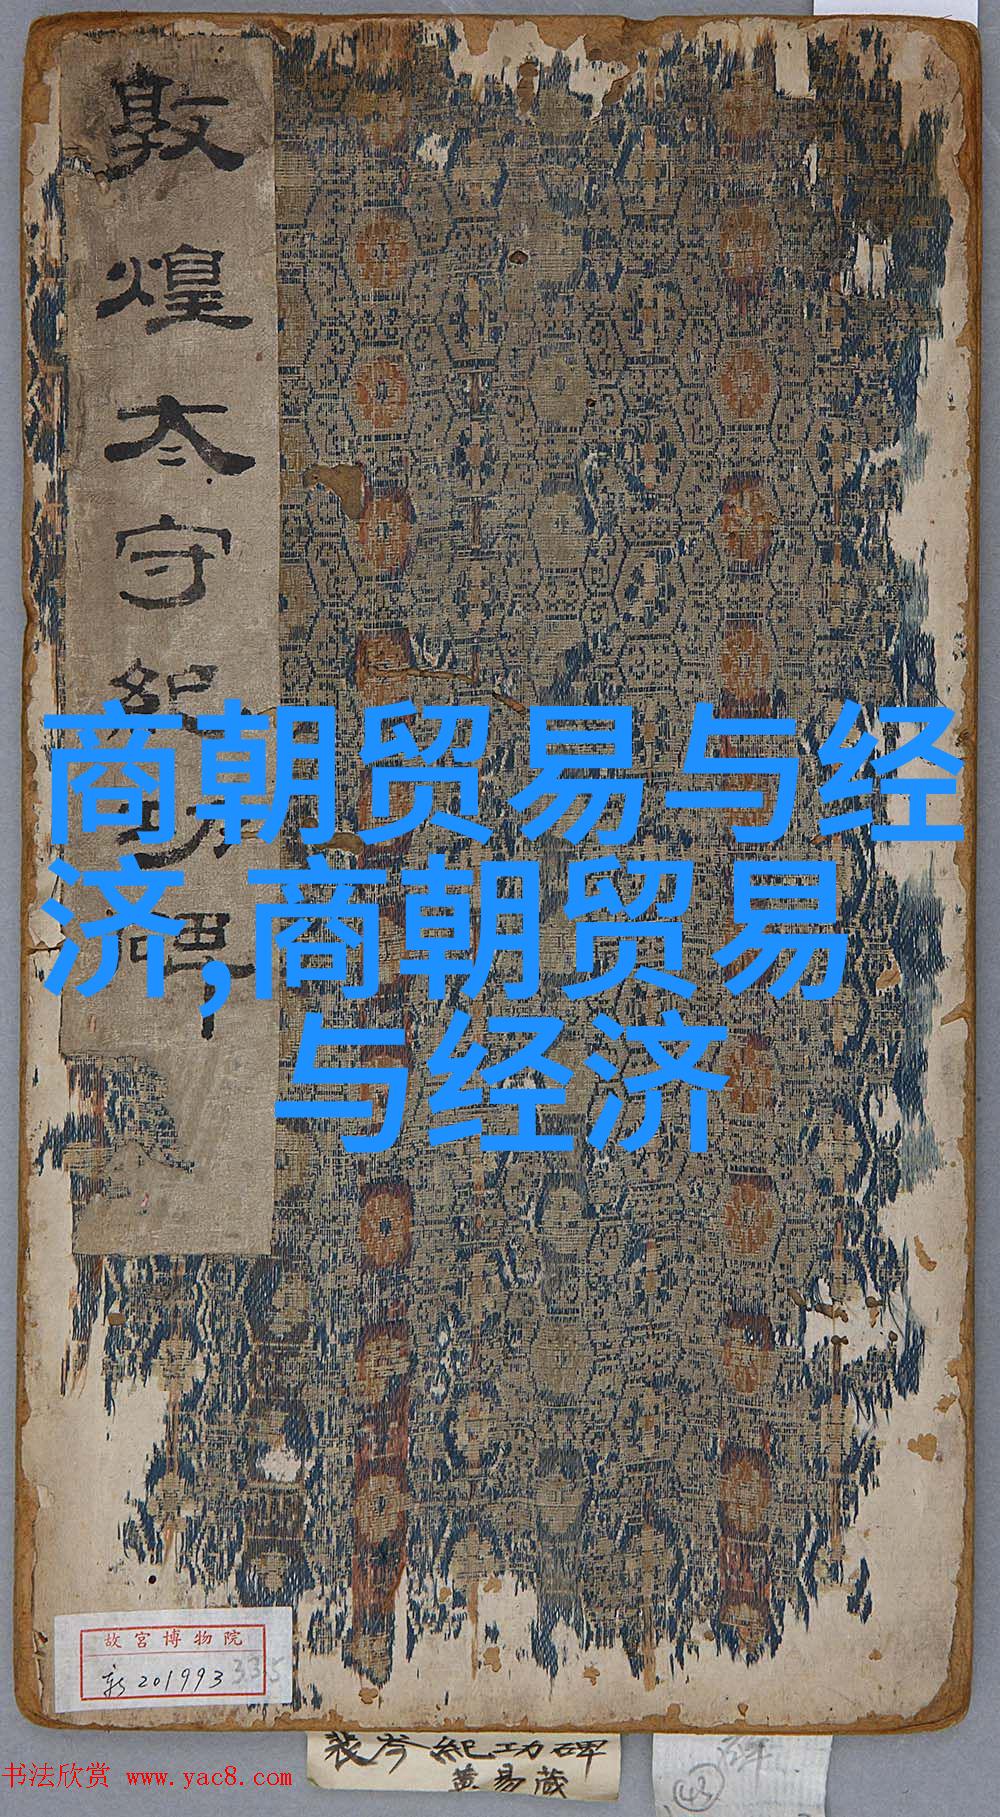 敦煌太守紀功碑
商朝贸易与经
济,商朝贸易
与经济
故宫博物院
新201993
335
裴岑紀功碑
黄易藏
43
书法欣赏 www.yac8.com